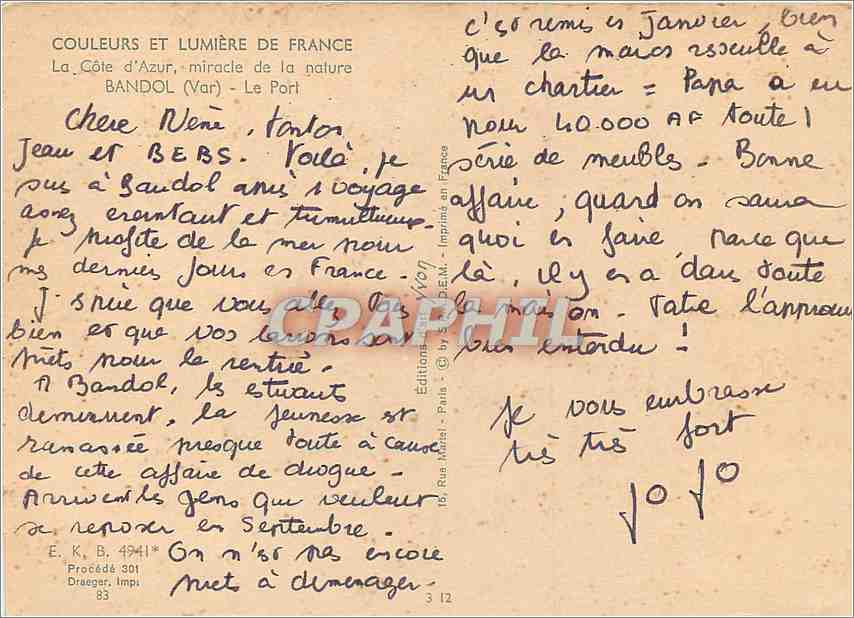 COULEURS ET LUMIÈRE DE FRANCE
La Côte d'Azur, miracle de la nature
BANDOL (Var) - Le Port
Chere Néné, tonton
Jean et BEBS. Voilà, je
suis à Bandol après 1 voyage
assez ereintant et tumultueux.
je profite de la mer pour
mes derniers jours en France.
J'espère que vous allez tous
bien et que vos larrons sont
prêts pour la rentrée.
A Bandol, les estivants
demeurent, la jeunesse est
ramassée presque toute à cause
de cette affaire de drogue -
Arrivent les gens qui veulent
se reposer en Septembre.
On n'est pas encore
prêts à démenager.
E. K. B. 4941*
Procédé 301
Draeger, Imp.
83
3 12
Éditions d'art Yvon
15, Rue Martel - Paris - © by S.P.A.D.E.M. - Imprimé en France
c'est remis en Janvier, bien
que la maison ressemble à
un chantier = Papa a eu
pour 40.000 AF toute 1
série de meubles - Bonne
affaire, quand on saura
quoi en faire, parce que
là, il y en a dans toute
la maison. Tatie l'approuve
bien entendu !
Je vous embrasse
très très fort
JoJo
CPAPHIL